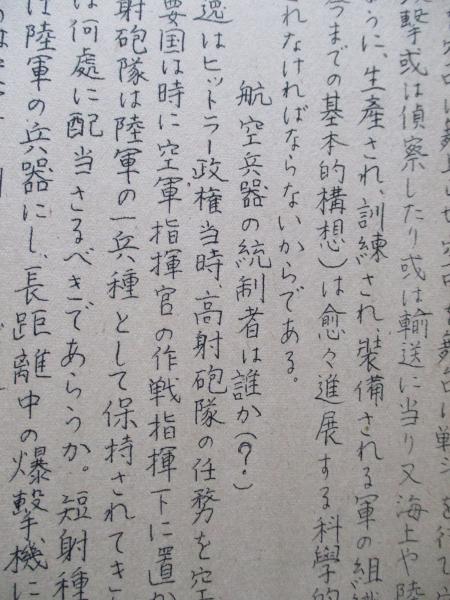 撃或は偵察したり或は輸送に当り又海上や陸
うに、生產され、訓練され、裝備される軍の組織
今までの基本的構想)は愈々進展する科學的
れなければならないからである。
航空兵器の統制者は誰か(?)
逸はヒットラー政権当時、高射砲隊の任務を空
要国は時に空軍指揮官の作戦指揮下に置か
射砲隊は陸軍の一兵種として保持されてき
は何處に配当さるべきであらうか。短射種
は陸軍の兵器にし、長距離中の爆撃機に